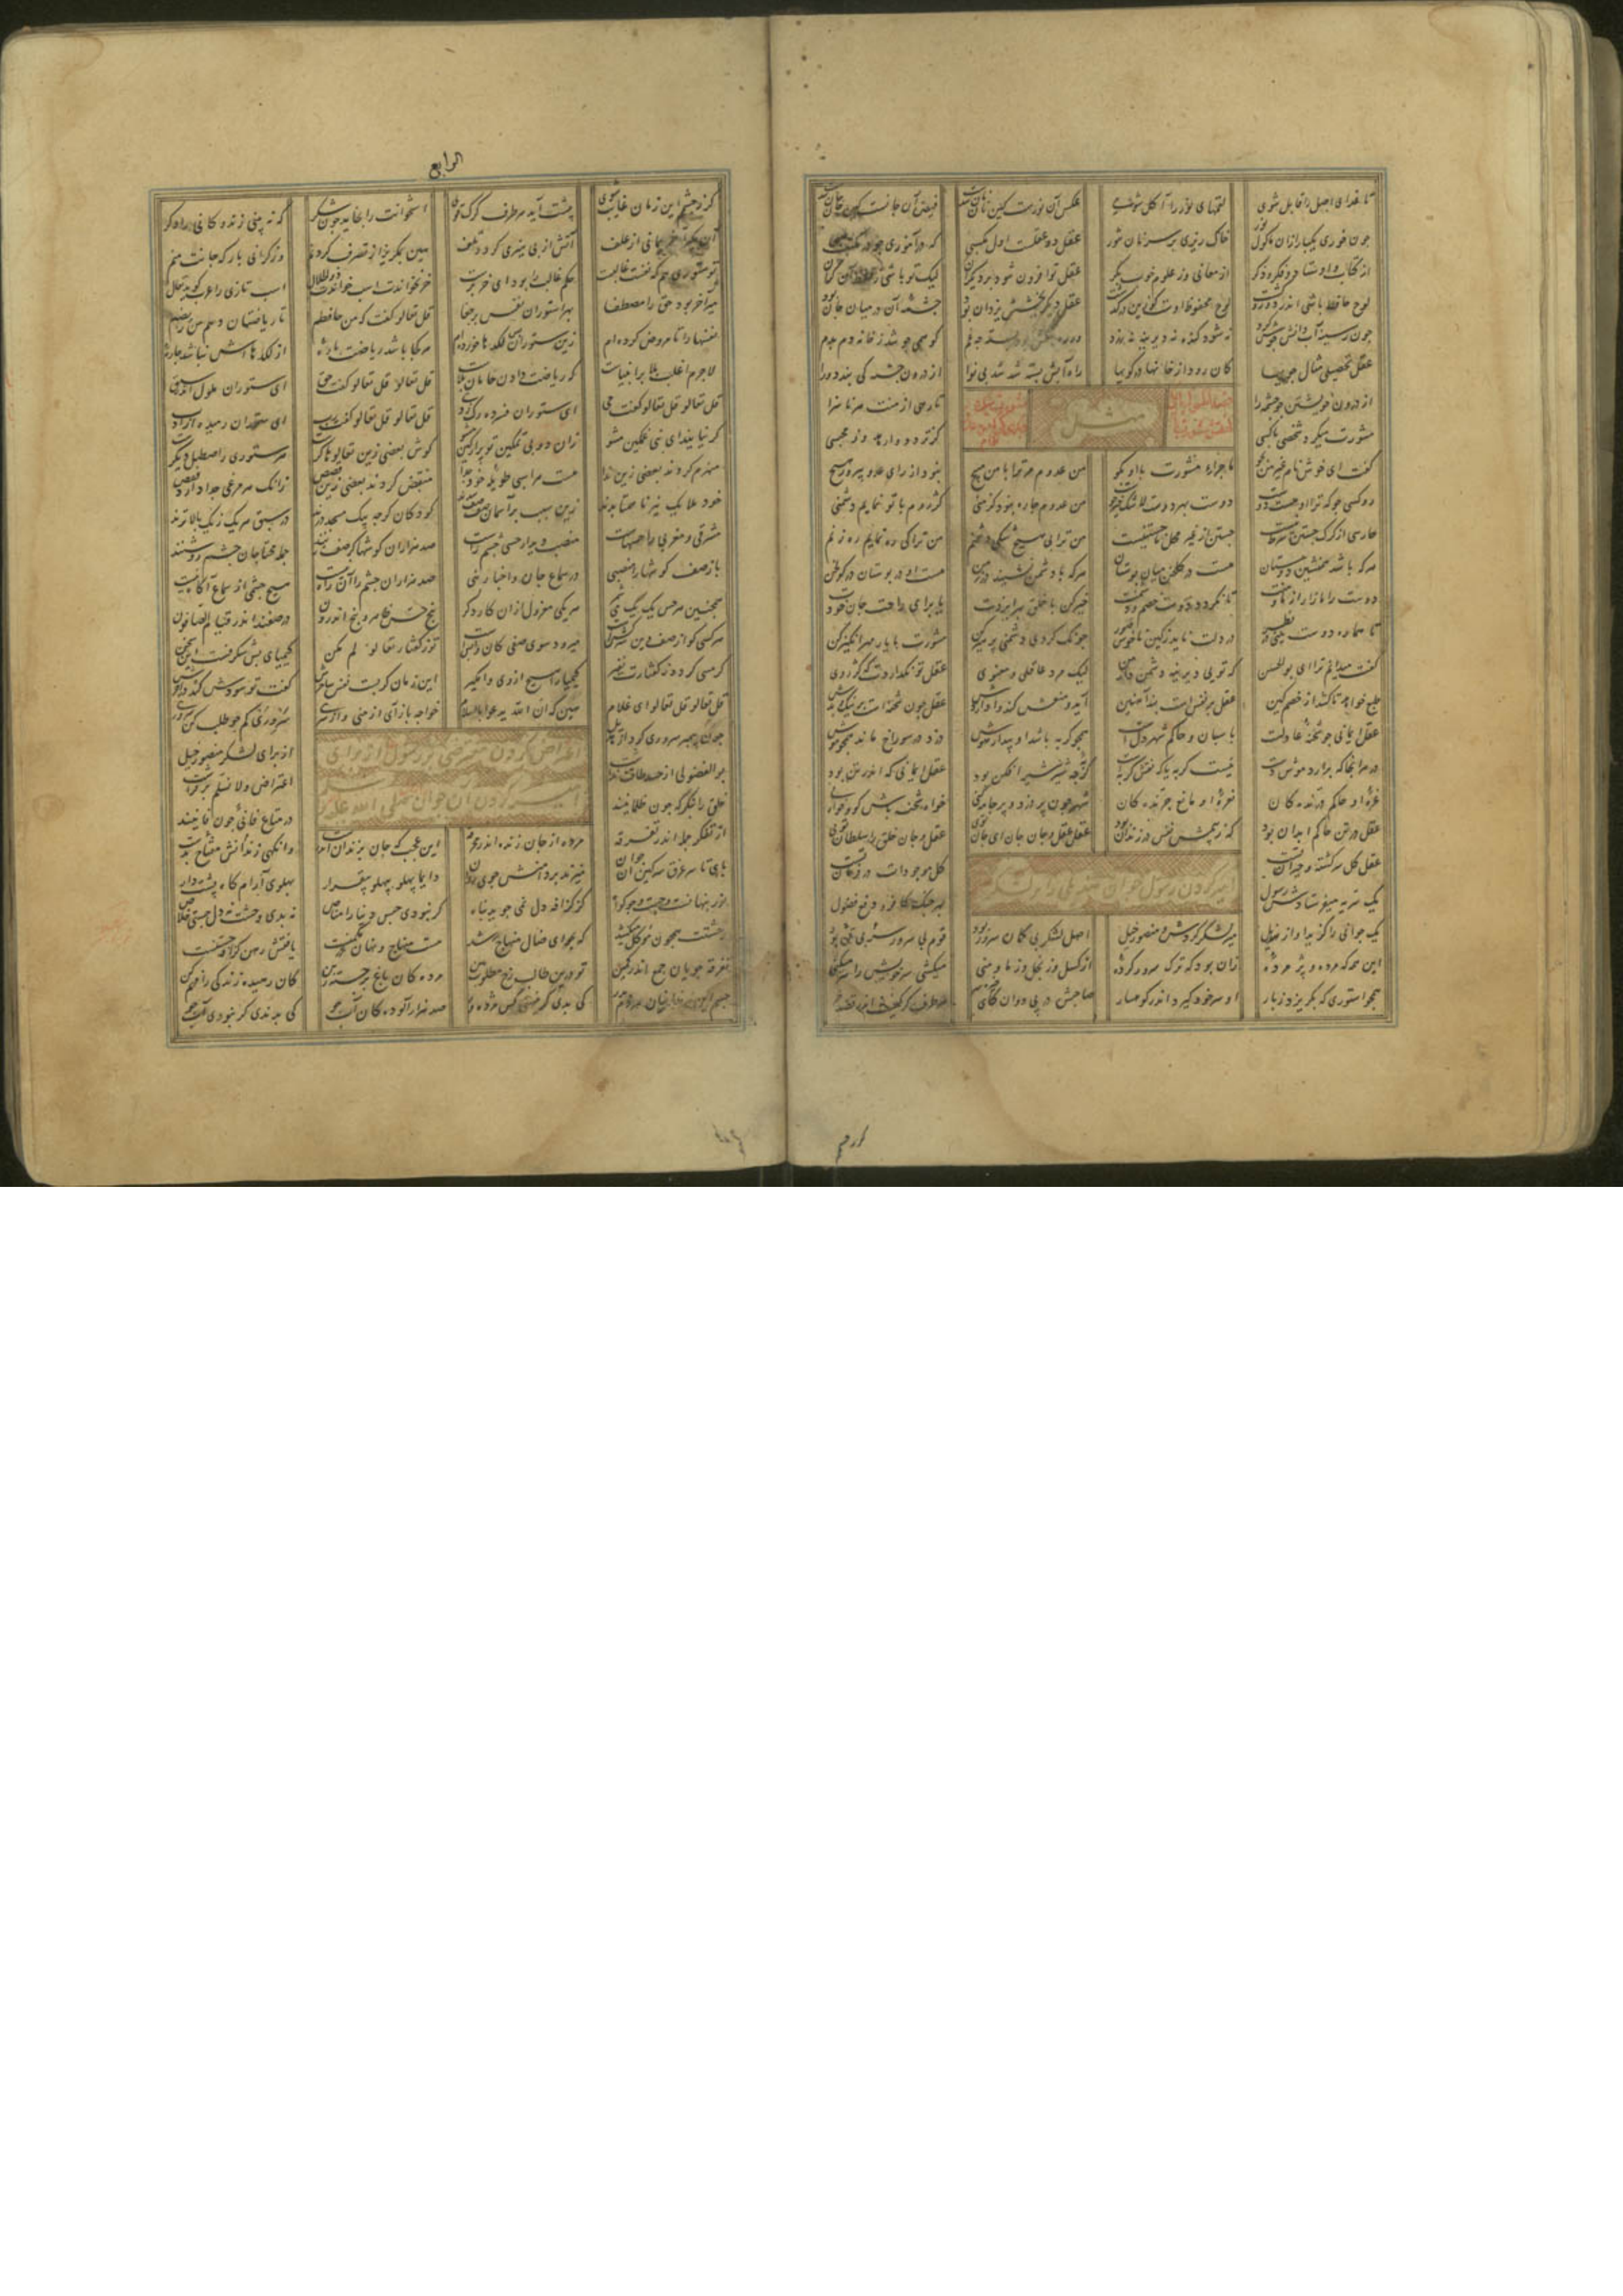 تا غذای اصل را قابل شوی لقمهای نور را آکل شوی عکس آن نورست کین نان نان شد فیض آن جانست کین جان جان شد
چون خوری یکبار ازان ماکول نور خاک ریزی بر سر نان تنور عقل دو عقلست اول مکسبی که در آموزی چو در مکتب صبی
از کتاب و اوستا و فکر و ذکر از معانی وز علوم خوب بکر عقل تو افزون شود بر دیگران لیک تو باشی ز حفظ آن گران
لوح حافظ باشی اندر دور و گشت لوح محفوظ اوست کو زین درگذشت عقل دیگر بخشش یزدان بود چشمه آن در میان جان بود
چون ز سینه آب دانش جوش کرد نه شود گنده نه دیرینه نه زرد کو همی جوشد ز خانه دم بدم
عقل تحصیلی مثال جویها کان رود از خانها در کویها راه آبش بسته شد شد بی نوا
از درون خویشتن جو چشمه را تا رهی از منت هر ناسزا
مثل
مشورت میکرد شخصی با کسی کز تردد وارهد وز محبسی
گفت ای خوش نام غیر من بجو ماجرای مشورت با او بگو من عدوم مر ترا با من مپیچ نبود از رای عدو پیروز هیچ
رو کسی جو که ترا او هست دوست دوست بهر دوست لاشک خیرجوست من عدوم چاره نبود کز منی کژ روم با تو نمایم دشمنی
حارسی از گرگ جستن شرط نیست جستن از غیر محل ناجستنیست من ترا بی هیچ شکی دشمنم من ترا کی ره نمایم ره زنم
هرکه باشد همنشین دوستان هست در گلخن میان بوستان هرکه با دشمن نشیند در زمن هست او در بوستان در گولخن
دوست را مازار از ما و منت تا نگردد دوست خصم و دشمنت خیر کن با خلق بهر ایزدت یا برای راحت جان خودت
تا هماره دوست بینی در نظر در دلت ناید ز کین ناخوش صور چونک کردی دشمنی پرهیز کن مشورت با یار مهرانگیز کن
گفت میدانم ترا ای بوالحسن که تویی دیرینه دشمن دار من لیک مرد عاقلی و معنوی عقل تو نگذاردت که کژ روی
طبع خواهد تا کشد از خصم کین عقل بر نفس است بند آهنین آید و منعش کند وا داردش عقل چون شحنه است در نیک و بدش
عقل ایمانی چو شحنه عادلست پاسبان و حاکم شهر دلست همچو گربه باشد او بیدار هوش دزد در سوراخ ماند همچو موش
در هر آنجا که برآرد موش دست نیست گربه یا که نقش گربه است گربه چه شیر شیر افکن بود عقل ایمانی که اندر تن بود
غره او حاکم درندگان نعره او مانع چرندگان شهر چون پر دزد و پر جامه کنی خواه شحنه باش گو و خواه نی
عقل در تن حاکم ایمان بود که ز بیمش نفس در زندان بود عقل عقل و جان جان ای جان توی عقل و جان خلق را سلطان توی
عقل کل سرگشته و حیران تست کل موجودات در فرمان تست
امیر کردن رسول جوان هذیلی را بر لشکر
یک سریه میفرستادش رسول بهر جنگ کافر و دفع فضول
یک جوانی را گزید او از هذیل میر لشکر کردش و سالار خیل اصل لشکر بی گمان سرور بود قوم بی سرور تن بی سر بود
این همه که مرده و پژمرده زان بود که ترک سرور کرده از کسل وز بخل وز ما و منی میکشی سر خویش را سر میکنی
همچو استوری که بگریزد ز بار او سر خود گیرد اندر کوهسار صاحبش در پی دوان کای خیره سر هر طرف گرگیست اندر قصد خر
الرابع
کز ز چشمم این زمان غایب شوی پیشت آید هر طرف گرگ قوی استخوانت را بخاید چون شکر که نبینی زندگانی را دگر
آن مگیر آخر بمانی از علف آتش از بی هیزمی گردد تلف هین بمگریز از تصرف کردنم وز گرانی بار که جانت منم
تو ستوری هم که نفست غالبست حکم غالب را بود ای خودپرست خر نخواندت اسب خواندت ذوالجلال اسب تازی را عرب گوید تعال
میر آخر بود حق را مصطفی بهر استوران نفس پر جفا قل تعالوا گفت که من حافظم تا ریاضتتان دهم من رایضم
نفسها را تا مروض کرده ام زین ستوران بس لگدها خورده ام هر کجا باشد ریاضت باره از لگدهااش نباشد چاره
لاجرم اغلب بلا بر انبیاست که ریاضت دادن خامان بلاست
قل تعالوا قل تعالوا گفت حی ای ستوران فسرده رگ و پی
گر نیایند ای نبی غمگین مشو زان دو بی تمکین تو پر از کین مشو گوش بعضی زین تعالوها کرست هر ستوری را صطبل دیگرست
منهزم گردند بعضی زین ندا هست هر اسبی طویله خود جدا منقبض گردند بعضی زین قصص زانک هر مرغی جدا دارد قفص
خود ملایک نیز ناهمتا بدند زین سبب بر آسمان صف صف شدند کودکان گرچه بیک مکتب درند در سبق هر یک ز یک بالاترند
مشرقی و مغربی را حسهاست منصب دیدار حس چشم راست صد هزاران گوشها گر صف زنند جمله محتاجان چشم روشنند
باز صف گوشها را منصبی در سماع جان و اخبار نبی صد هزاران چشم را آن راه نیست هیچ چشمی از سماع آگاه نیست
همچنین هر حس یک یک میشمر هر یکی معزول از ان کار دگر پنج حس ظاهر و پنج اندرون در صفند اندر قیام الصافون
هر کسی کو از صف دین سرکشست میرود سوی صفی کان واپس است تو ز گفتار تعالوا کم مکن کیمیای بس شگرفست این سخن
گر مسی گردد ز گفتارت نفیر کیمیا را هیچ از وی وامگیر این زمان گر بست نفس ساحرش گفت تو سودش کند در آخرش
قل تعالوا قل تعالوا ای غلام هین که ان الله یدعوا بالسلام خواجه باز آی از منی و از سری سروری کم جو طلب کن سروری
اعتراض کردن معترضی بر رسول از برای
امیر کردن آن جوان صلی الله علیه
چون پیمبر سروری کرد از هذیل از برای لشکر منصور خیل
بوالفضولی از حسد طاقت نداشت اعتراض و لانسلم بر فراشت
خلق را بنگر که چون ظلمانیند در متاع فانی چون فانیند
از تکبر جمله اندر تفرقه مرده از جان زنده اندر مخرقه این عجب که جان بزندان اندرست وانگهی زندانش مفتاح بدست
پای تا سر غرق سرگین آن جوان میزند بر دامنش جوی روان دایما پهلو بپهلو بیقرار پهلوی آرامگاه پشت دار
نور پنهانست و جست و جو گواه کز گزافه دل نمی جوید پناه گر نبودی حبس دنیا را مناص نه بدی وحشت نه دل جستی خلاص
وحشتت همچون موکل میکشد که بجو ای ضال منهاج رشد هست منهاج و نهان در مکمنست یافتش رهن گزافه جستنست
تفرقه جویان جمع اندر کمین تو درین طالب رخ مطلوب بین مردگان باغ برجسته ز بن کان دهنده زندگی را فهم کن
چشم این زندانیان هر دم بدر کی بدی گر نیستی کس مژده ور صد هزار آلودگان آب جو کی بدندی گر نبودی آب جو